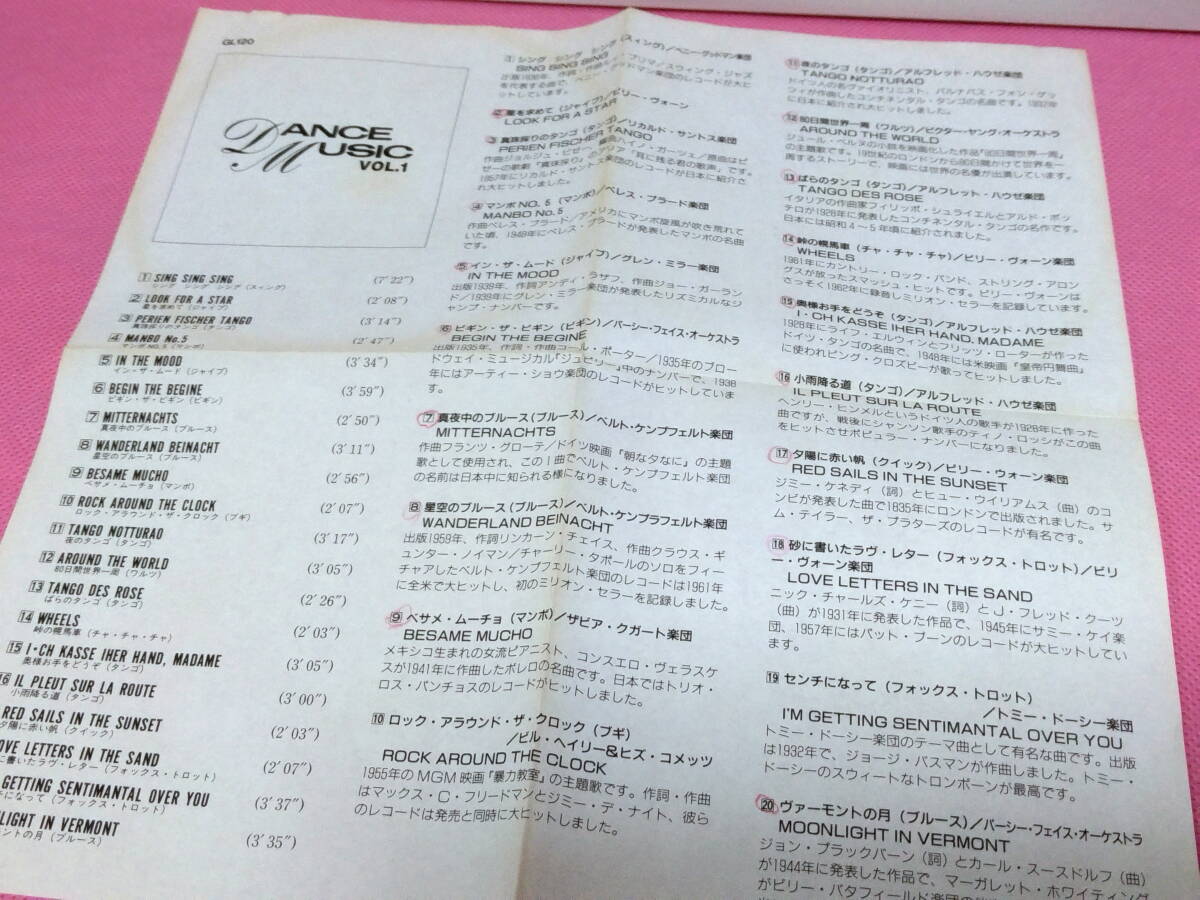 GL120
DANCE
MUSIC
VOL.1
1 SING SING SING (7'22")
シング シング シング (スィング)
2 LOOK FOR A STAR (2'08")
星を求めて (ジャイブ)
3 PERIEN FISCHER TANGO (3'14")
真珠採りのタンゴ (タンゴ)
4 MANBO No.5 (2'47")
マンボNO.5 (マンボ)
5 IN THE MOOD (3'34")
イン・ザ・ムード (ジャイブ)
6 BEGIN THE BEGINE (3'59")
ビギン・ザ・ビギン (ビギン)
7 MITTERNACHTS (2'50")
真夜中のブルース (ブルース)
8 WANDERLAND BEINACHT (3'11")
星空のブルース (ブルース)
9 BESAME MUCHO (2'56")
ベサメ・ムーチョ (マンボ)
10 ROCK AROUND THE CLOCK (2'07")
ロック・アラウンド・ザ・クロック (ブギ)
11 TANGO NOTTURAO (3'17")
夜のタンゴ (タンゴ)
12 AROUND THE WORLD (3'05")
80日間世界一周 (ワルツ)
13 TANGO DES ROSE (2'26")
ばらのタンゴ (タンゴ)
14 WHEELS (2'03")
峠の幌馬車 (チャ・チャ・チャ)
15 I・CH KASSE IHER HAND, MADAME (3'05")
奥様お手をどうぞ (タンゴ)
16 IL PLEUT SUR LA ROUTE (3'00")
小雨降る道 (タンゴ)
RED SAILS IN THE SUNSET (2'03")
夕陽に赤い帆 (クイック)
OVE LETTERS IN THE SAND (2'07")
に書いたラヴ・レター (フォックス・トロット)
GETTING SENTIMANTAL OVER YOU (3'37")
チになって (フォックス・トロット)
LIGHT IN VERMONT (3'35")
モントの月 (ブルース)
1 シング シング シング (スィング)/ベニー・グッドマン楽団
SING SING SING
出版1936年、作詞・作曲ルイ・プリマ/スウィング・ジャズ
を代表する曲で、ベニー・グッドマン楽団のレコードが大ヒ
ットしています。
2 星を求めて (ジャイブ)/ビリー・ヴォーン
LOOK FOR A STAR
3 真珠採りのタンゴ (タンゴ)/リカルド・サントス楽団
PERIEN FISCHER TANGO
作曲ジョルジュ・ビゼー、編曲ハイノ・ガーツェ/原曲はビ
ゼーの歌劇「真珠採り」のアリア「耳に残る君の歌声」です。
1957年にリカルド・サントス楽団のレコードが日本に紹介さ
れ大ヒットしました。
4 マンボNO.5 (マンボ)/ペレス・プラード楽団
MANBO No.5
作曲ペレス・プラード/アメリカにマンボ旋風が吹き荒れて
いた頃、1949年にペレス・プラードが発表したマンボの名曲
です。
5 イン・ザ・ムード (ジャイブ)/グレン・ミラー楽団
IN THE MOOD
出版1939年、作詞アンディ・ラザフ、作曲ジョー・ガーラン
ド/1939年にグレン・ミラー楽団が発表したリズミカルなジ
ャンプ・ナンバーです。
6 ビギン・ザ・ビギン (ビギン)/パーシー・フェイス・オーケストラ
BEGIN THE BEGINE
出版1935年、作詞・作曲コール・ポーター/1935年のブロー
ドウェイ・ミュージカル「ジュビリー」中のナンバーで、1938
年にはアーティー・ショウ楽団のレコードがヒットしていま
す。
7 真夜中のブルース (ブルース)/ベルト・ケンプフェルト楽団
MITTERNACHTS
作曲フランツ・グローテ/ドイツ映画『朝な夕なに』の主題
歌として使用され、この1曲でベルト・ケンプフェルト楽団
の名前は日本中に知られる様になりました。
8 星空のブルース (ブルース)/ベルト・ケンプラフェルト楽団
WANDERLAND BEINACHT
出版1959年、作詞リンカーン・チェイス、作曲クラウス・ギ
ュンター・ノイマン/チャーリー・タボールのソロをフィー
チャアしたベルト・ケンプフェルト楽団のレコードは1961年
に全米で大ヒットし、初のミリオン・セラーを記録しました。
9 ベサメ・ムーチョ (マンボ)/ザビア・クガート楽団
BESAME MUCHO
メキシコ生まれの女流ピアニスト、コンスエロ・ヴェラスケ
スが1941年に作曲したボレロの名曲です。日本ではトリオ・
ロス・パンチョスのレコードがヒットしました。
10 ロック・アラウンド・ザ・クロック (ブギ)
/ビル・ヘイリー&ヒズ・コメッツ
ROCK AROUND THE CLOCK
1955年のMGM映画『暴力教室』の主題歌です。作詞・作曲
はマックス・C・フリードマンとジミー・デ・ナイト、彼ら
のレコードは発売と同時に大ヒットしました。
11 夜のタンゴ (タンゴ)/アルフレッド・ハウゼ楽団
TANGO NOTTURAO
ドイツ人の名ヴァイオリニスト、バルナバス・フォン・ゲッ
ツィが作曲したコンチネンタル・タンゴの名曲です。1937年
に日本に紹介され大ヒットしました。
12 80日間世界一周 (ワルツ)/ビクター・ヤング・オーケストラ
AROUND THE WORLD
ジュール・ベルヌの小説を映画化した作品『80日間世界一周』
の主題歌です。19世紀のロンドンから80日間かけて世界を一
周するストーリーで、映画には世界の名優が出演しています。
13 ばらのタンゴ (タンゴ)/アルフレット・ハウゼ楽団
TANGO DES ROSE
イタリアの作曲家フィリッポ・シュライエルとアルド・ボッ
テロが1928年に発表したコンチネンタル・タンゴの名作です。
日本には昭和4~5年頃に紹介されました。
14 峠の幌馬車 (チャ・チャ・チャ)/ビリー・ヴォーン楽団
WHEELS
1961年にカントリー・ロック・バンド、ストリング・アロン
グスが放ったスマッシュ・ヒットです。ビリー・ヴォーンは
さっそく1962年に録音しミリオン・セラーを記録しています。
15 奥様お手をどうぞ (タンゴ)/アルフレッド・ハウゼ楽団
I・CH KASSE IHER HAND, MADAME
1928年にライフ・エルウィンとフリッツ・ローターが作った
ドイツ・タンゴの名曲で、1948年には米映画「皇帝円舞曲」
に使われビング・クロズビーが歌ってヒットしました。
16 小雨降る道 (タンゴ)/アルフレッド・ハウゼ楽団
IL PLEUT SUR LA ROUTE
ヘンリー・ヒンメルというドイツ人の歌手が1928年に作った
曲ですが、戦後にシャンソン歌手のティノ・ロッシがこの曲
をヒットさせポピュラー・ナンバーになりました。
17 夕陽に赤い帆 (クイック)/ビリー・ウォーン楽団
RED SAILS IN THE SUNSET
ジミー・ケネディ (詞) とヒュー・ウイリアムス (曲) のコ
ンビが発表した曲で1835年にロンドンで出版されました。サ
ム・テイラー、ザ・プラターズのレコードが有名です。
18 砂に書いたラヴ・レター (フォックス・トロット)/ビリ
ー・ヴォーン楽団
LOVE LETTERS IN THE SAND
ニック・チャールズ・ケニー (詞) とJ・フレッド・クーツ
(曲) が1931年に発表した作品で、1945年にサミー・ケイ楽
団、1957年にはパット・ブーンのレコードが大ヒットしてい
ます。
19 センチになって (フォックス・トロット)
/トミー・ドーシー楽団
I'M GETTING SENTIMANTAL OVER YOU
トミー・ドーシー楽団のテーマ曲として有名な曲です。出版
は1932年で、ジョージ・バスマンが作曲しました。トミー・
ドーシーのスウィートなトロンボーンが最高です。
20 ヴァーモントの月 (ブルース)/パーシー・フェイス・オーケストラ
MOONLIGHT IN VERMONT
ジョン・ブラックバーン (詞) とカール・スースドルフ (曲)
が1944年に発表した作品で、マーガレット・ホワイティング
がビリー・バタフィールド楽団の